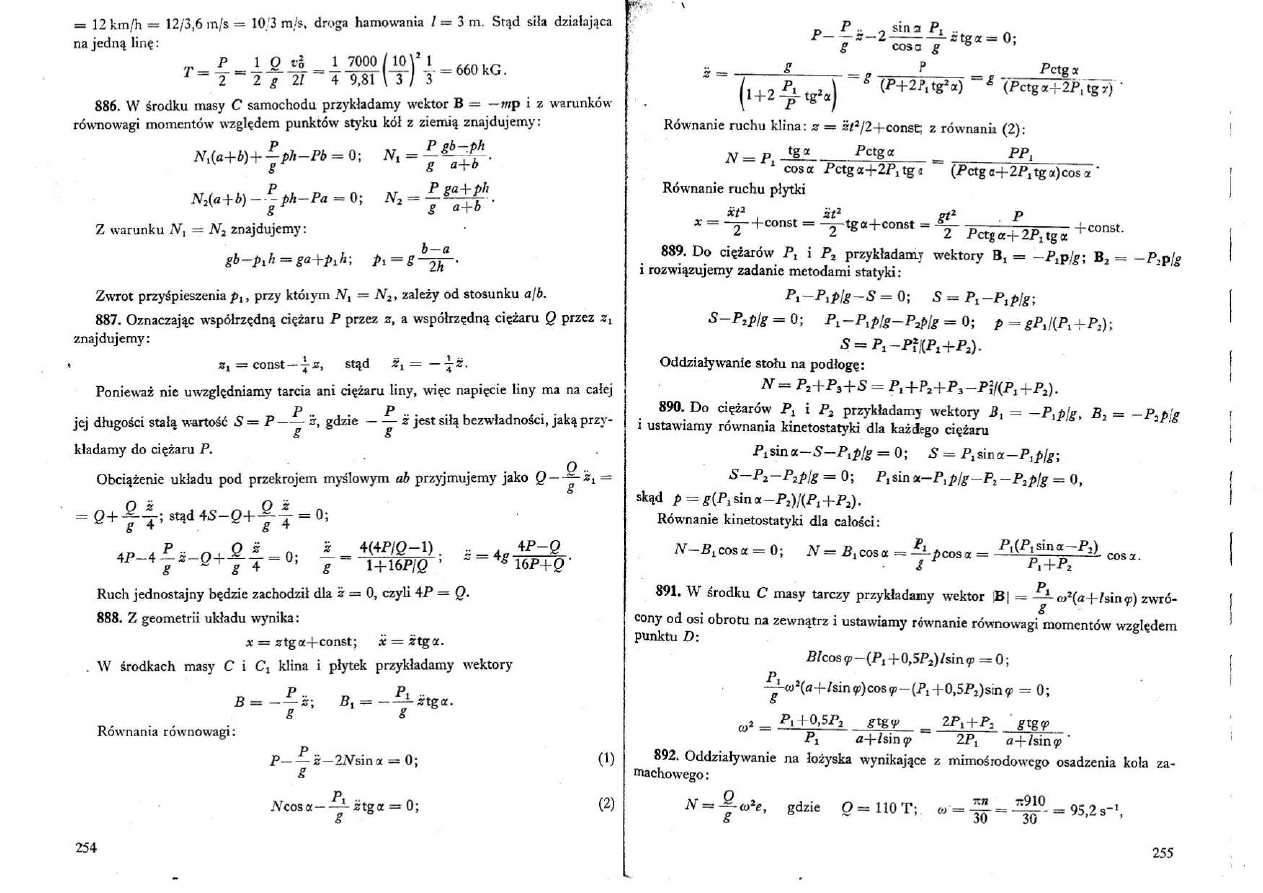 = 12 km/h = 12/3,6 m/s = 10/3 m/s, droga hamowania l = 3 m. Stąd siła działająca
na jedną linę:
T = P/2 = 1/2 Q/g v₀²/2l = 1/4 7000/9,81 (10/3)² 1/3 = 660 kG.
886. W środku masy C samochodu przykładamy wektor B = —mp i z warunków
równowagi momentów względem punktów styku kół z ziemią znajdujemy:
N₁(a+b)+P/g ph—Pb = 0; N₁ = P/g (gb—ph)/(a+b).
N₂(a+b)—P/g ph—Pa = 0; N₂ = P/g (ga+ph)/(a+b).
Z warunku N₁ = N₂ znajdujemy:
gb—p₁h = ga+p₁h; p₁ = g (b—a)/2h.
Zwrot przyśpieszenia p₁, przy którym N₁ = N₂, zależy od stosunku a/b.
887. Oznaczając współrzędną ciężaru P przez z, a współrzędną ciężaru Q przez z₁
znajdujemy:
z₁ = const—¼z, stąd z̈₁ = —¼z̈.
Ponieważ nie uwzględniamy tarcia ani ciężaru liny, więc napięcie liny ma na całej
jej długości stałą wartość S = P—P/g z̈, gdzie —P/g z̈ jest siłą bezwładności, jaką przy-
kładamy do ciężaru P.
Obciążenie układu pod przekrojem myślowym ab przyjmujemy jako Q—Q/g z̈₁ =
= Q+Q/g z̈/4; stąd 4S—Q+Q/g z̈/4 = 0;
4P—4 P/g z̈—Q+Q/g z̈/4 = 0; z̈/g = 4(4P/Q—1)/(1+16P/Q); z̈ = 4g (4P—Q)/(16P+Q).
Ruch jednostajny będzie zachodził dla z̈ = 0, czyli 4P = Q.
888. Z geometrii układu wynika:
x = ztgα+const; ẍ = z̈tgα.
W środkach masy C i C₁ klina i płytek przykładamy wektory
B = —P/g z̈; B₁ = —P₁/g z̈tgα.
Równania równowagi:
P—P/g z̈—2Nsinα = 0; (1)
Ncosα—P₁/g z̈tgα = 0; (2)
254
P—P/g z̈—2 sinα/cosα P₁/g z̈tgα = 0;
z̈ = g/(1+2 P₁/P tg²α) = g P/(P+2P₁tg²α) = g Pctgα/(Pctgα+2P₁tgα).
Równanie ruchu klina: z = z̈t²/2+const; z równania (2):
N = P₁ tgα/cosα Pctgα/(Pctgα+2P₁tgα) = PP₁/(Pctgα+2P₁tgα)cosα.
Równanie ruchu płytki
x = ẍt²/2+const = z̈t²/2 tgα+const = gt²/2 P/(Pctgα+2P₁tgα)+const.
889. Do ciężarów P₁ i P₂ przykładamy wektory B₁ = —P₁p/g; B₂ = —P₂p/g
i rozwiązujemy zadanie metodami statyki:
P₁—P₁p/g—S = 0; S = P₁—P₁p/g;
S—P₂p/g = 0; P₁—P₁p/g—P₂p/g = 0; p = gP₁/(P₁+P₂);
S = P₁—P₁²/(P₁+P₂).
Oddziaływanie stołu na podłogę:
N = P₂+P₃+S = P₁+P₂+P₃—P₁²/(P₁+P₂).
890. Do ciężarów P₁ i P₂ przykładamy wektory B₁ = —P₁p/g, B₂ = —P₂p/g
i ustawiamy równania kinetostatyki dla każdego ciężaru
P₁sinα—S—P₁p/g = 0; S = P₁sinα—P₁p/g;
S—P₂—P₂p/g = 0; P₁sinα—P₁p/g—P₂—P₂p/g = 0,
skąd p = g(P₁sinα—P₂)/(P₁+P₂).
Równanie kinetostatyki dla całości:
N—B₁cosα = 0; N = B₁cosα = P₁/g pcosα = P₁(P₁sinα—P₂)/(P₁+P₂) cosα.
891. W środku C masy tarczy przykładamy wektor |B| = P₁/g ω²(a+lsinφ) zwró-
cony od osi obrotu na zewnątrz i ustawiamy równanie równowagi momentów względem
punktu D:
Blcosφ—(P₁+0,5P₂)lsinφ = 0;
P₁/g ω²(a+lsinφ)cosφ—(P₁+0,5P₂)sinφ = 0;
ω² = (P₁+0,5P₂)/P₁ gtgφ/(a+lsinφ) = (2P₁+P₂)/2P₁ gtgφ/(a+lsinφ).
892. Oddziaływanie na łożyska wynikające z mimośrodowego osadzenia koła za-
machowego:
N = Q/g ω²e, gdzie Q = 110 T; ω = πn/30 = π910/30 = 95,2 s⁻¹,
255